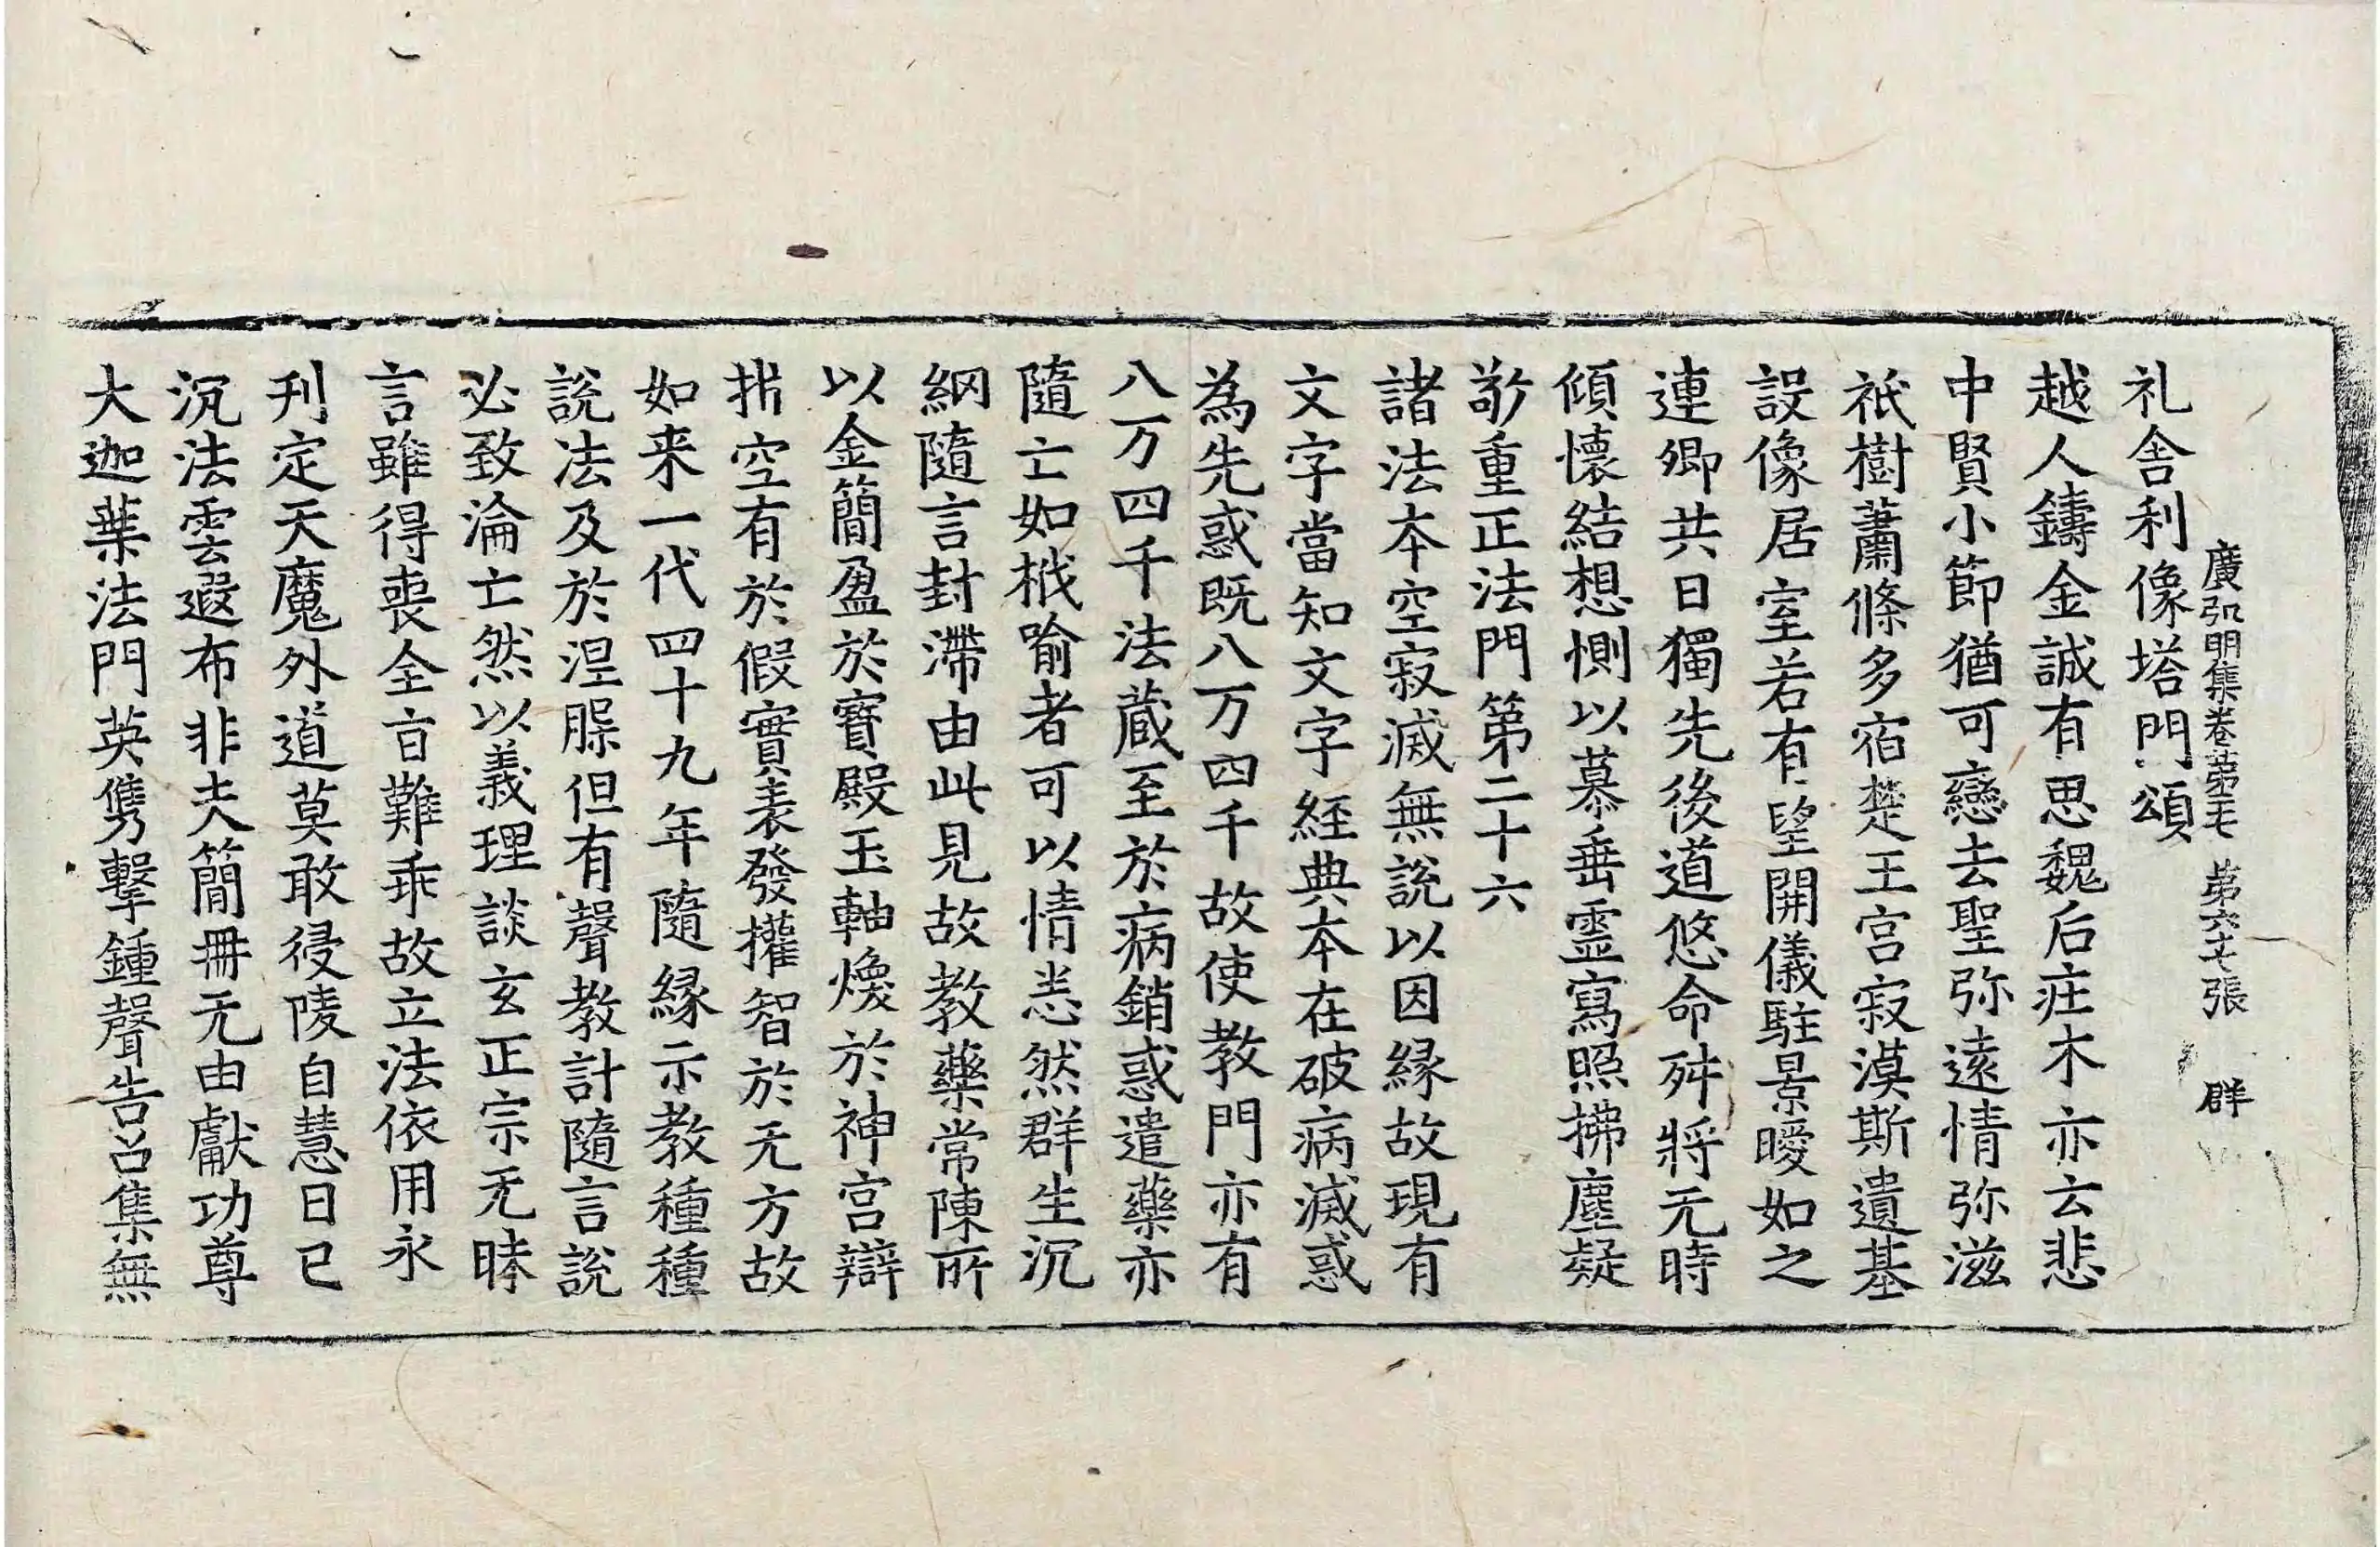 廣弘明集卷第二十七 第六十七張 群
礼舍利像塔門頌
越人鑄金誠有思魏后庄木亦云悲
中賢小節猶可戀去聖弥遠情弥滋
祇樹蕭條多宿楚王宮寂漠斯遺基
設像居室若有望開儀駐景曖如之
連卿共日獨先後道悠命舛將无時
傾懷結想惻以慕垂靈寫照拂塵疑
敬重正法門第二十六
諸法本空寂滅無說以因縁故現有
文字當知文字經典本在破病滅惑
為先惑既八万四千故使教門亦有
八万四千法蔵至於病銷惑遣藥亦
隨亡如栰喻者可以情恙然群生沉
網隨言封滯由此見故教藥常陳所
以金簡盈於寶殿玉軸煥於神宮辯
指空有於假實表發權智於无方故
如来一代四十九年隨縁示教種種
說法及於涅槃但有聲教計隨言說
必致淪亡然以義理談玄正宗无昧
言雖得喪全旨難乖故立法依用永
刋定天魔外道莫敢侵陵自慧日已
沉法雲遐布非夫簡冊无由獻功尊
大迦葉法門英雋擊鍾聲告召集無